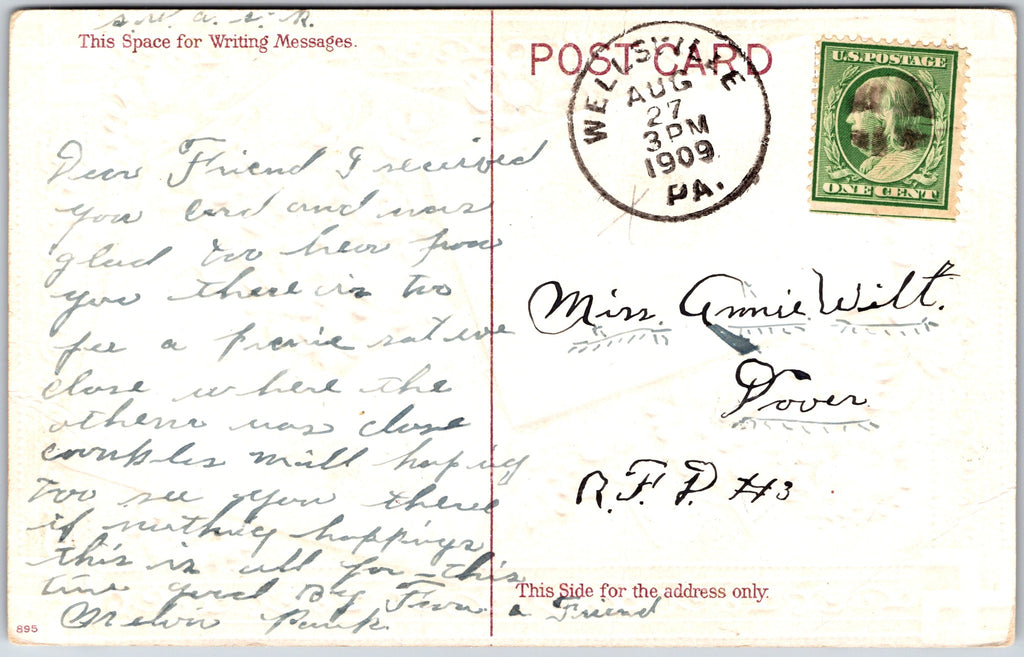 S. W. A. S. K.
This Space for Writing Messages.
Dear Friend I received
you card and was
glad too hear from
you there is too
fee a picnic sat eve
close where the
others was close
mill hoping
too see you there
if nothing happings
this is all for this
time good By From
Melvin a Friend
895
POST CARD
WELLSVILLE
AUG
27
3 PM
1909
PA.
U.S. POSTAGE
ONE CENT
Miss. Annie Wilt.
Dover
R. F. D #3
This Side for the address only.